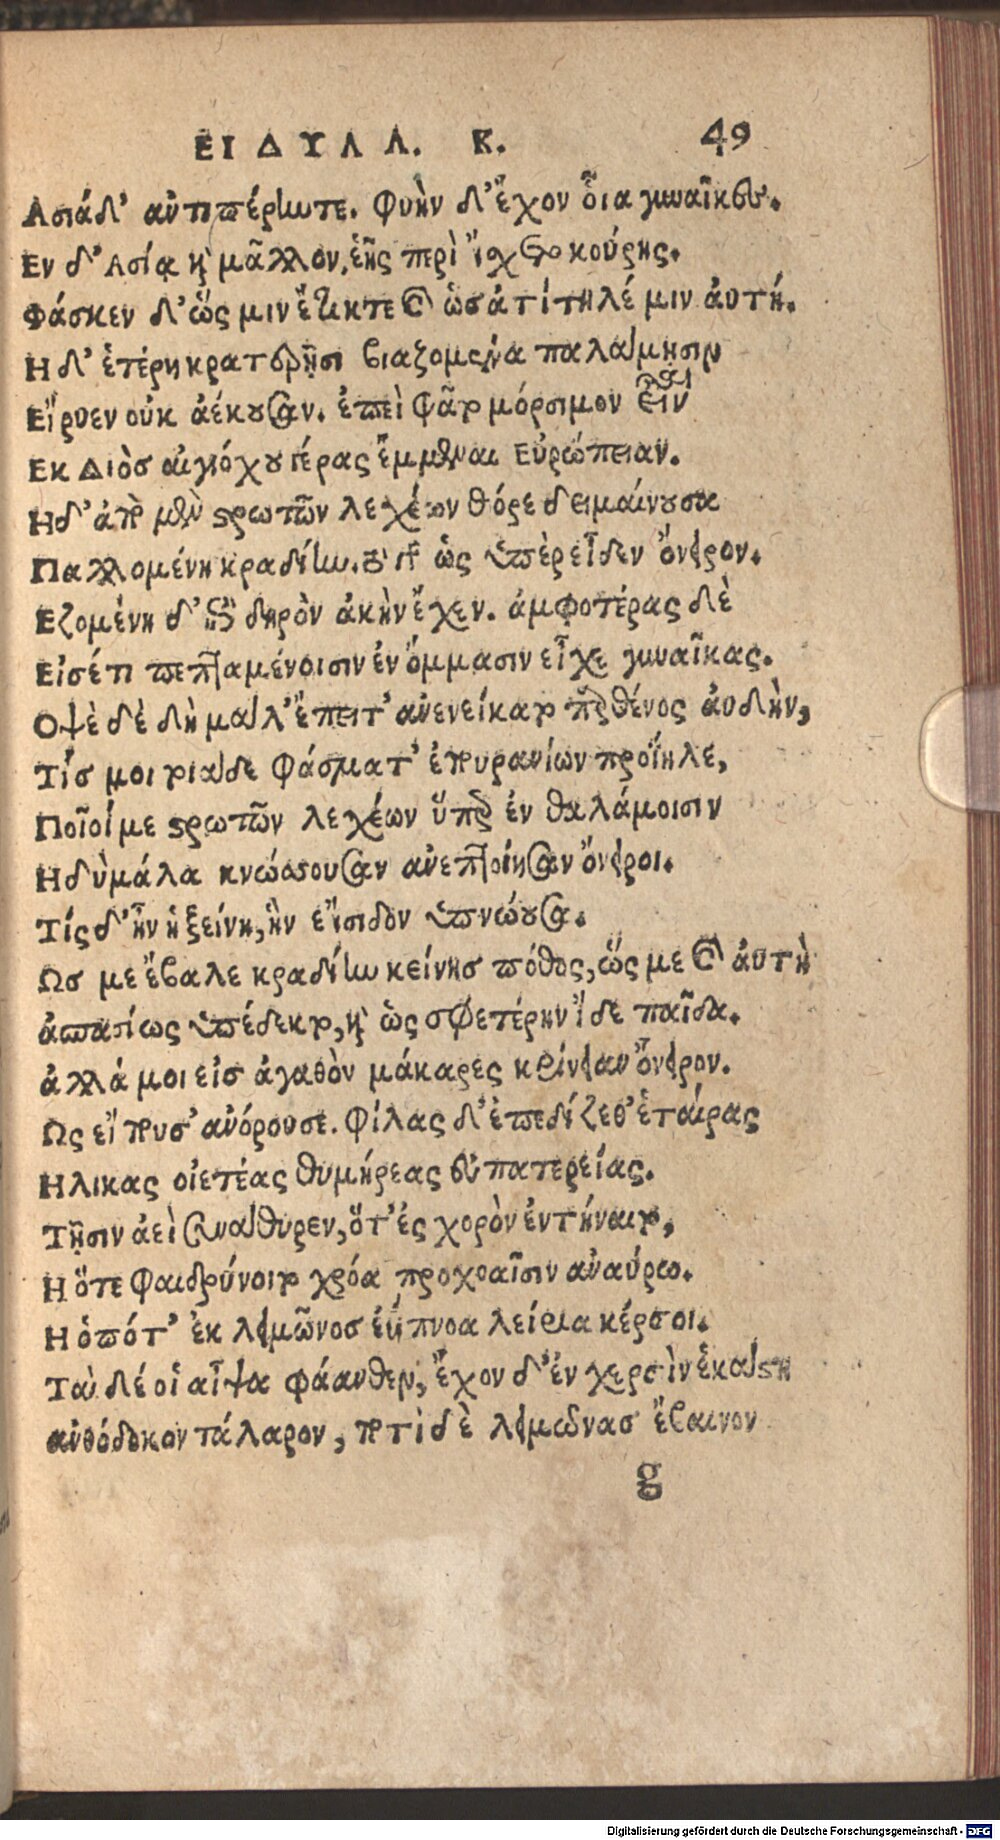 ΕΙΔΥΛΛ. Κ. 49
Ασιάδ' ἀντιπέρηντε. Φυὴν δ' ἔχον οἷα γυναῖκες.
Εν δ' Ασία καὶ μᾶλλον, ἑῆς περὶ ἴσχετο κούρης.
Φάσκεν δ' ὥς μιν ἔτικτε καὶ ὡς ἀτίτηλέ μιν αὐτή.
Η δ' ἑτέρη κρατερῇσι βιαζομένα παλάμῃσιν
Εἴρυεν οὐκ ἀέκουσαν. ἐπεὶ φᾶτο μόρσιμον εἶναι
Εκ Διὸσ αἰγιόχου γέρας ἔμμεναι Εὐρώπειαν.
Ηδ' ἀπὸ μὲν στρωτῶν λεχέων θόρε δειμαίνουσα
Παλλομένη κραδίην. τὸ γὰρ ὡς ὕπὲρ εἶδεν ὄνειρον.
Εζομένη δ' ἐπὶ δηρὸν ἀκὴν ἔχεν. ἀμφοτέρας δὲ
Εἰσέτι πεπταμένοισιν ἐν ὄμμασιν εἶχε γυναῖκας.
Οψὲ δὲ δὴ μάλ' ἔπειτ' ἀνενείκατο παρθένος αὐδὴν,
Τίσ μοι τιάδε φάσματ' ἐπουρανίων προΐηλε,
Ποῖοί με στρωτῶν λεχέων ὕπερ ἐν θαλάμοισιν
Ηδὺ μάλα κνώσσουσαν ἀνεπτοίησαν ὄνειροι.
Τίς δ' ἦν ἡ ξείνη, ἣν εἴσιδον ὑπνώουσα.
Ωσ με ἔβαλε κραδίην κείνησ πόθος, ὥς με καὶ ἀυτὴ
ἀσπασίως ὑπέδεκτο, καὶ ὡς σφετέρην ἴδε παῖδα.
ἀλλά μοι εἰσ ἀγαθὸν μάκαρες κρίνειαν ὄνειρον.
Ως εἰποῦσ' ἀνόρουσε. Φίλας δ' ἐπεδίζεθ' ἑταίρας
Ηλικας οἰετέας θυμήρεας εὐπατερείας.
Τῇσιν ἀεὶ συνάθυρεν, ὅτ' ἐς χορὸν ἐντήναιτο,
Η ὅτε φαιδρύνοιτο χρόα προχοαῖσιν ἀναύρω.
Η ὁπότ' ἐκ λειμῶνοσ ἐΰπνοα λείρια κέρσοι.
Ταὶ δέ οἱ αἶψα φάανθεν, ἔχον δ' ἐν χερσὶν ἑκάστη
ἀνθόδοκον τάλαρον, ποτὶ δὲ λειμῶνασ ἔβαινον
g
Digitalisierung gefördert durch die Deutsche Forschungsgemeinschaft - DFG